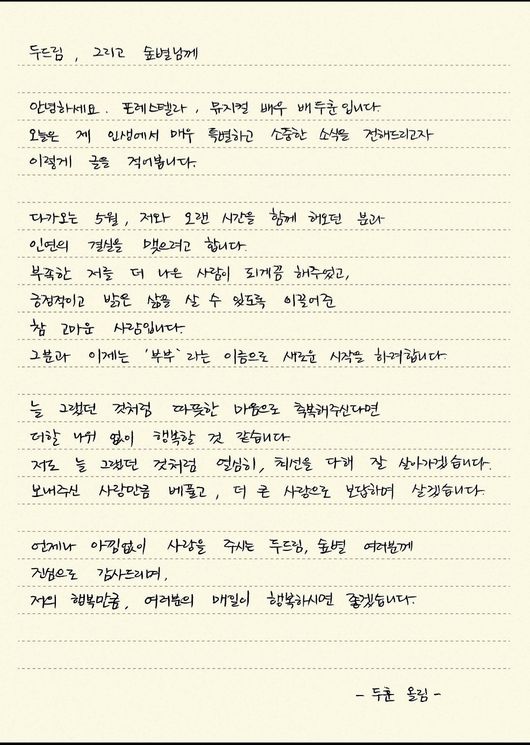 두드림, 그리고 숲별님께
안녕하세요. 포레스텔라, 뮤지컬 배우 배두훈입니다.
오늘은 제 인생에서 매우 특별하고 소중한 소식을 전해드리고자
이렇게 글을 적어봅니다.
다가오는 5월, 저와 오랜 시간을 함께 해오던 분과
인연의 결실을 맺으려고 합니다.
부족한 저를 더 나은 사람이 되게끔 해주었고,
긍정적이고 밝은 삶을 살 수 있도록 이끌어준
참 고마운 사람입니다.
그분과 이제는 '부부`라는 이름으로 새로운 시작을 하려합니다.
늘 그랬던 것처럼 따뜻한 마음으로 축복해주신다면
더할 나위 없이 행복할 것 같습니다.
저도 늘 그랬던 것처럼 열심히, 최선을 다해 잘 살아가겠습니다.
보내주신 사랑만큼 베풀고, 더 큰 사랑으로 보답하며 살겠습니다.
언제나 아낌없이 사랑을 주시는 두드림, 숲별 여러분께
진심으로 감사드리며,
저의 행복만큼, 여러분의 매일이 행복하시면 좋겠습니다.
- 두훈 올림 -